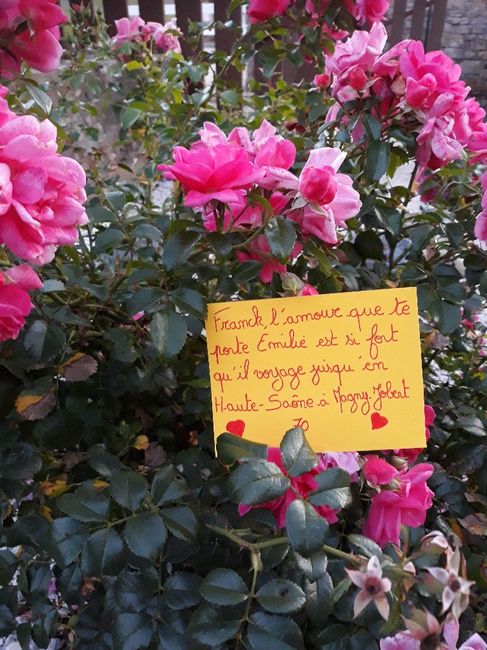 Franck, l'amour que te
porte Emilie est si fort
qu'il voyage jusqu'en
Haute-Saône à Magny-Jobert
70